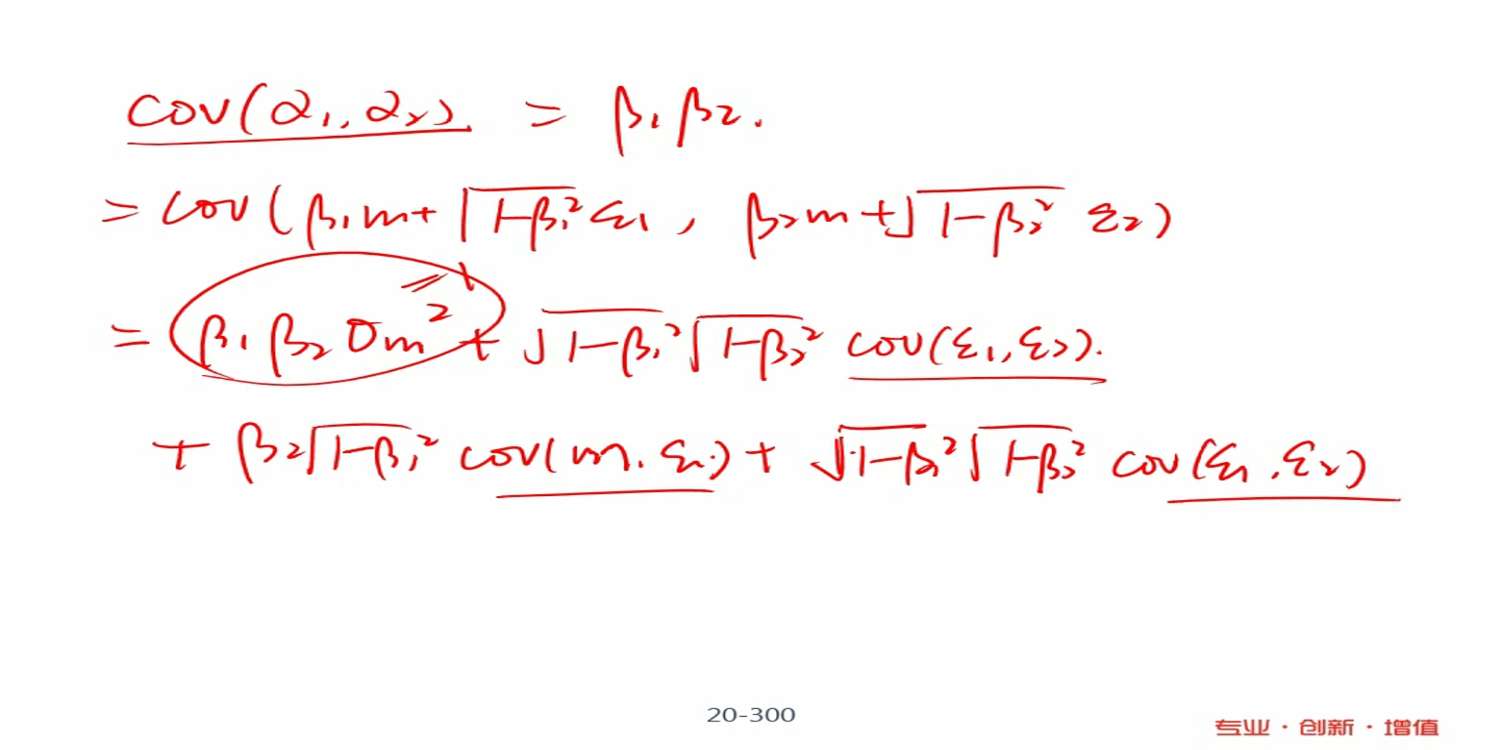 cov(α₁, α₂) = β₁β₂.
= cov(β₁m+√1-β₁² ε₁, β₂m+√1-β₂² ε₂)
=1
= β₁β₂σm² + √1-β₁² √1-β₂² cov(ε₁,ε₂).
+ β₂√1-β₁² cov(m, ε₁) + √1-β₁² √1-β₂² cov(ε₁, ε₂)
20-300
专业·创新·增值